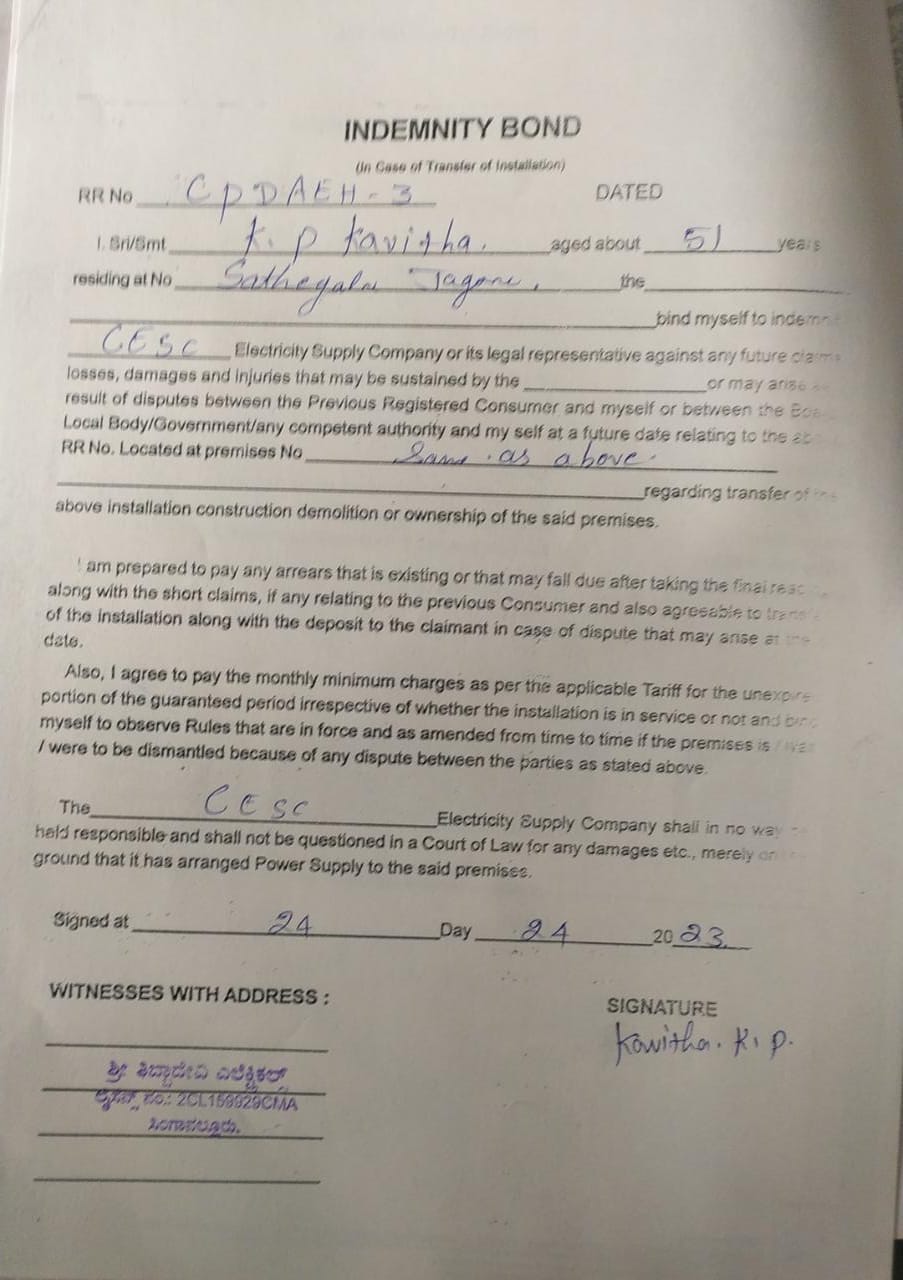 INDEMNITY BOND
(In Case of Transfer of Installation)
RR No CPDAEH-3 DATED
I. Sri/Smt K. P Kavitha. aged about 51 years
residing at No Sathegala Jageri, the
bind myself to indemn
CESC Electricity Supply Company or its legal representative against any future claims
losses, damages and injuries that may be sustained by the or may arise as
result of disputes between the Previous Registered Consumer and myself or between the Boa
Local Body/Government/any competent authority and my self at a future date relating to the ab
RR No. Located at premises No Same as above.
regarding transfer of the
above installation construction demolition or ownership of the said premises.
I am prepared to pay any arrears that is existing or that may fall due after taking the final read
along with the short claims, if any relating to the previous Consumer and also agreeable to trans
of the installation along with the deposit to the claimant in case of dispute that may arise at the
date.
Also, I agree to pay the monthly minimum charges as per the applicable Tariff for the unexpire
portion of the guaranteed period irrespective of whether the installation is in service or not and bind
myself to observe Rules that are in force and as amended from time to time if the premises is / was
/ were to be dismantled because of any dispute between the parties as stated above.
The CESC Electricity Supply Company shall in no way
held responsible and shall not be questioned in a Court of Law for any damages etc., merely on the
ground that it has arranged Power Supply to the said premises.
Signed at 24 Day 24 2023
WITNESSES WITH ADDRESS :
SIGNATURE
Kavitha. K. P.
ಶ್ರೀ ಎಲೆಕ್ಟ್ರಿಕಲ್ಸ್
ನಂ.: 2CL159929CMA